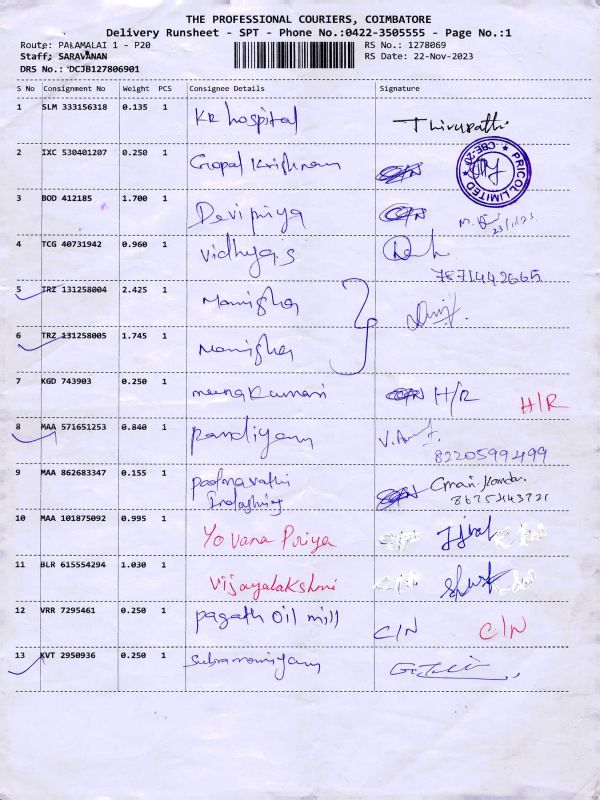 THE PROFESSIONAL COURIERS, COIMBATORE
Delivery Runsheet - SPT - Phone No.:0422-3505555 - Page No.:1
Route: PALAMALAI 1 - P20 RS No.: 1278069
Staff: SARAVANAN RS Date: 22-Nov-2023
DRS No.: DCJB127806901
S No Consignment No Weight PCS Consignee Details Signature
1 SLM 333156318 0.135 1 KR hospital Thirupathi
2 IXC 530401207 0.250 1 Gopal Krishnan
PRICOL LIMITED
3 BOD 412185 1.700 1 Devi priya C/N
4 TCG 40731942 0.960 1 Vidhya.s
7871442665
5 TRZ 131258004 2.425 1 Manisha
6 TRZ 131258005 1.745 1 Manisha
7 KGD 743903 0.250 1 meenakumari H/R H/R
8 MAA 571651253 0.840 1 Pandiyan
8220599499
9 MAA 862683347 0.155 1 padmavathi
Industries
8675443721
10 MAA 101875092 0.995 1 Yovana Priya
11 BLR 615554294 1.030 1 Vijayalakshmi
12 VRR 7295461 0.250 1 pagath oil mill C/N C/N
13 KVT 2950936 0.250 1 Subramaniyam